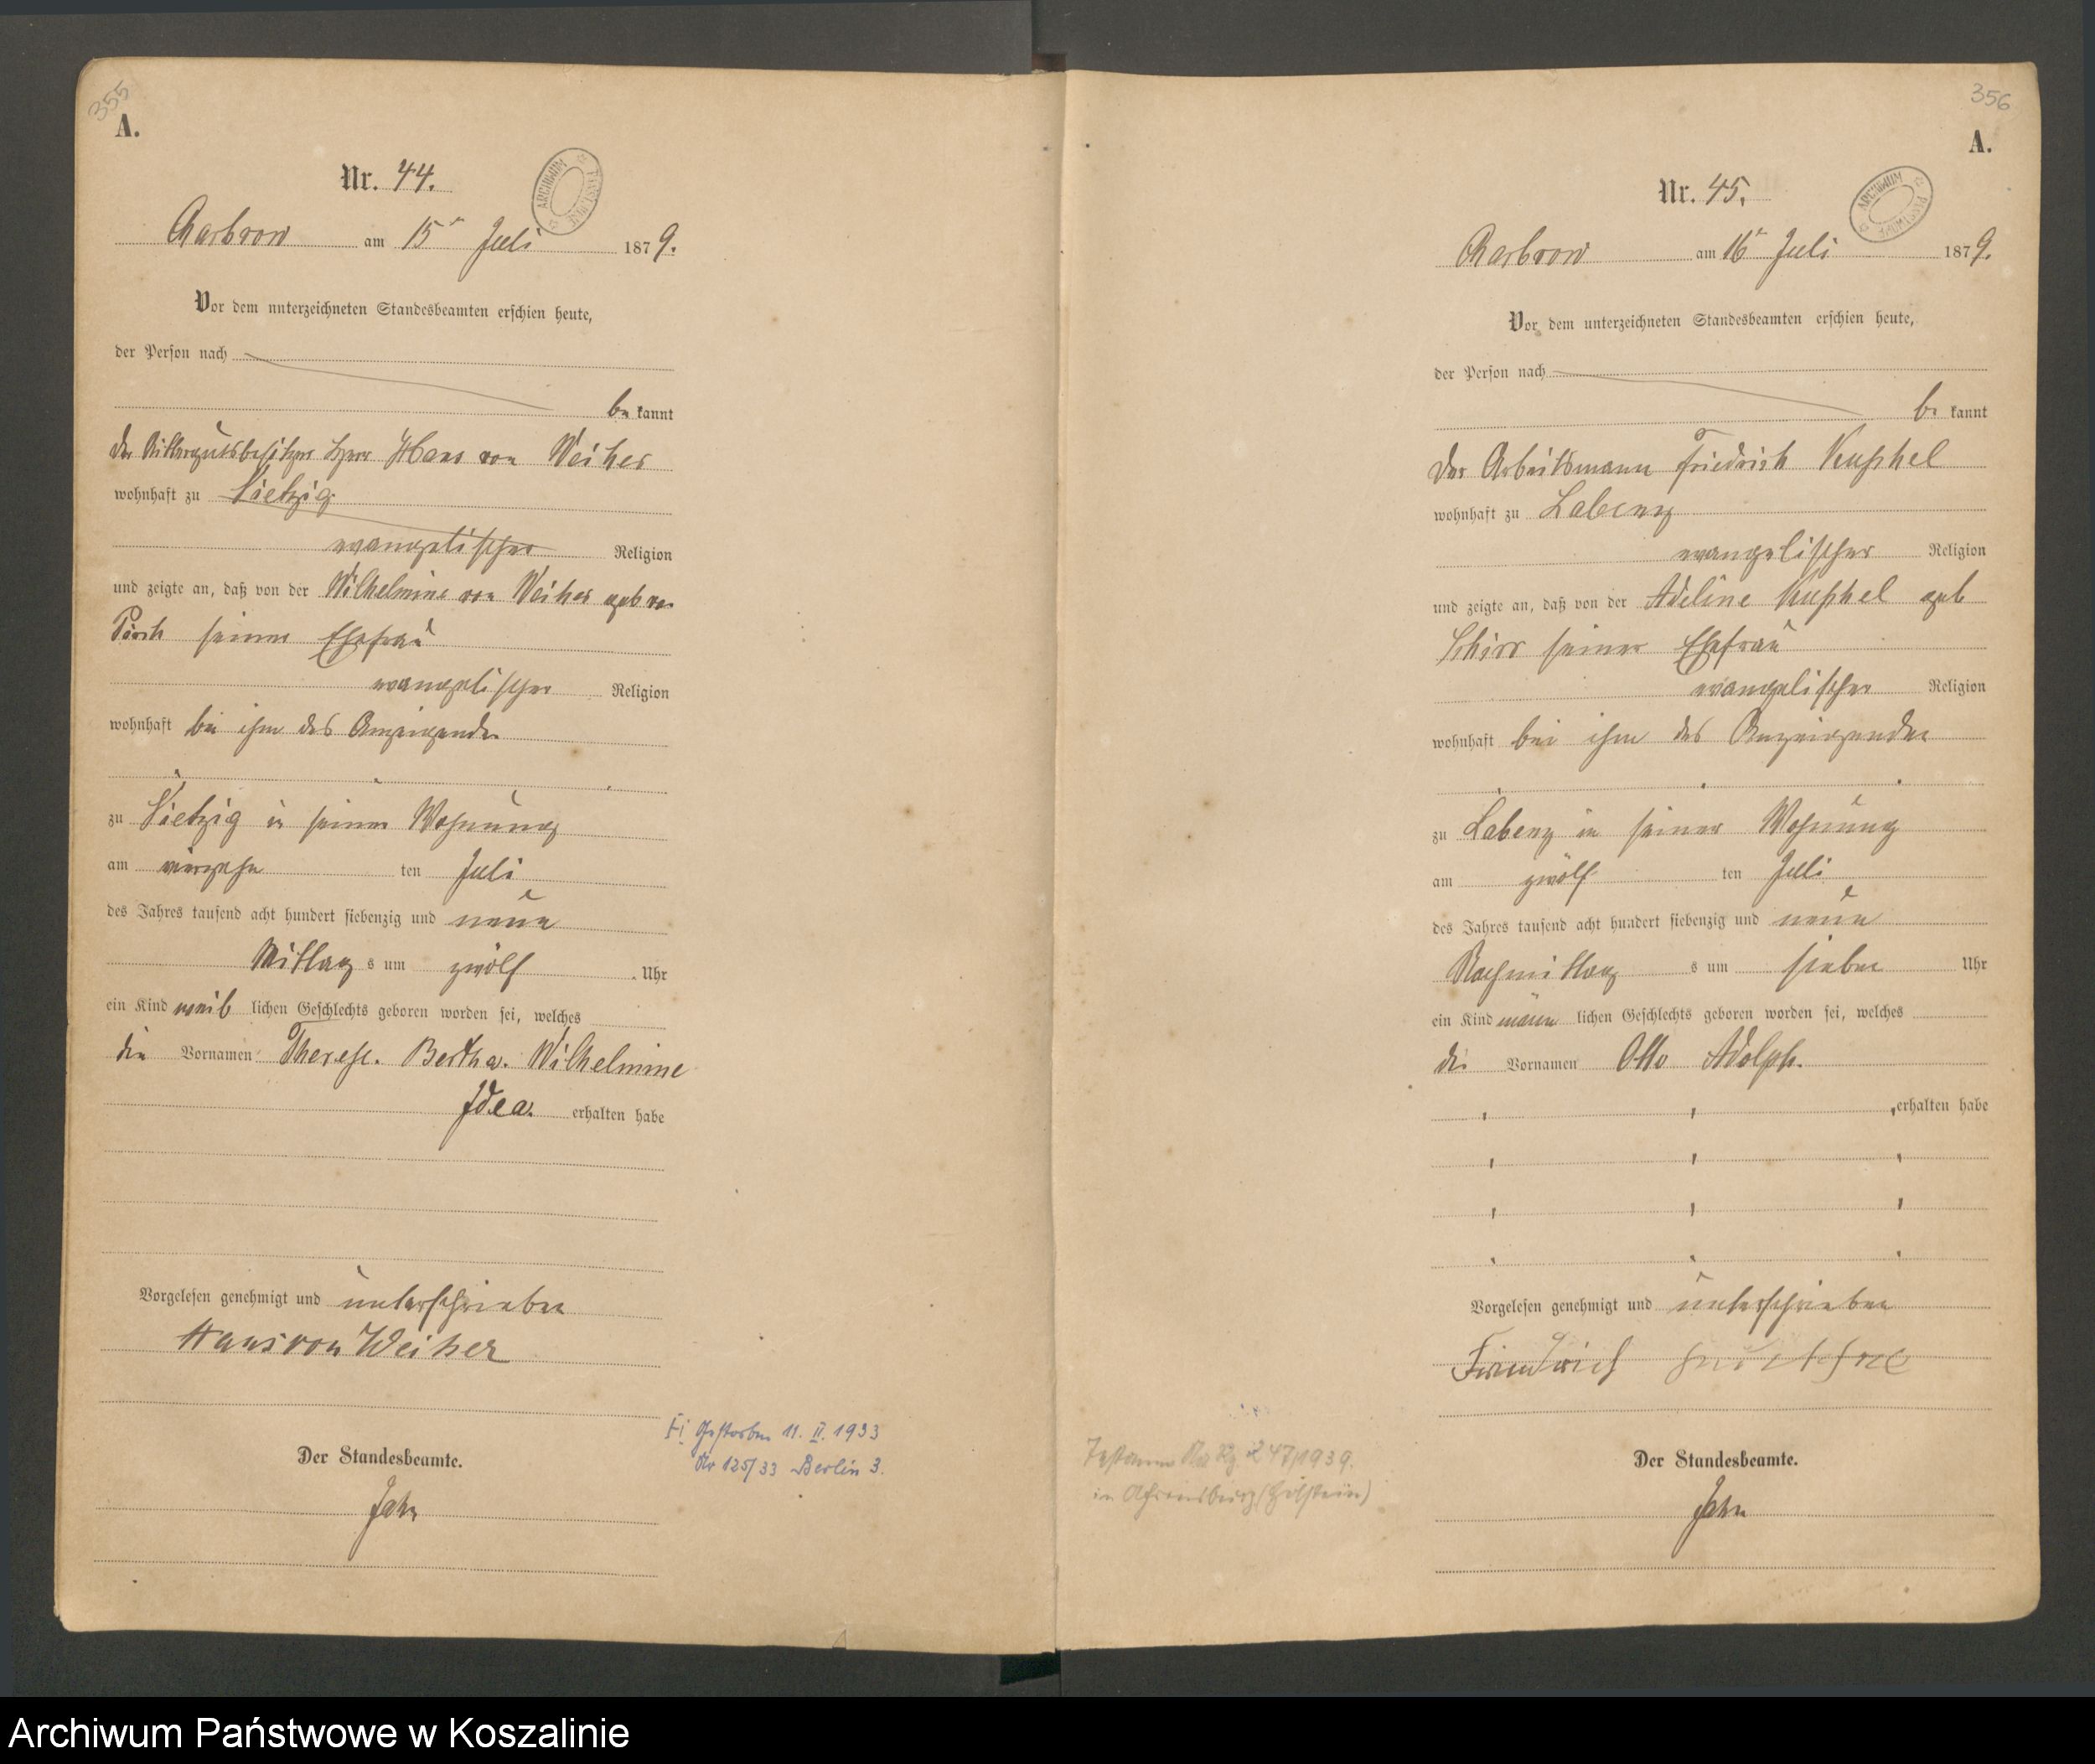 355
A.
Nr. 44.
ARCHIWUM PAŃSTWOWE
Charbrow am 15ᵗ Juli 1879.
Vor dem unterzeichneten Standesbeamten erschien heute,
der Person nach
be kannt
der Rittergutsbesitzer Herr Hans von Weiher
wohnhaft zu Vietzig
evangelischer Religion
und zeigte an, daß von der Wilhelmine von Weiher geb von
Pirch seiner Ehefrau
evangelischer Religion
wohnhaft bei ihm des Anzeigenden
zu Vietzig in seiner Wohnung
am vierzehn ten Juli
des Jahres tausend acht hundert siebenzig und neun
Mittag s um zwölf Uhr
ein Kind weib lichen Geschlechts geboren worden sei, welches
die Vornamen Therese. Bertha. Wilhelmine
Idea. erhalten habe
Vorgelesen genehmigt und unterschrieben
Hans von Weiher
Der Standesbeamte.
Jahn
Gestorben 11. II. 1933
Nr 125/33 Berlin 3.
356
A.
Nr. 45.
ARCHIWUM PAŃSTWOWE
Charbrow am 16ᵗ Juli 1879.
Vor dem unterzeichneten Standesbeamten erschien heute,
der Person nach
be kannt
Der Arbeitsmann Friedrich Kuschel
wohnhaft zu Labenz
evangelischer Religion
und zeigte an, daß von der Adeline Kuschel geb
Schirr seiner Ehefrau
evangelischer Religion
wohnhaft bei ihm des Anzeigenden
zu Labenz in seiner Wohnung
am zwölf ten Juli
des Jahres tausend acht hundert siebenzig und neun
Nachmittag s um sieben Uhr
ein Kind männ lichen Geschlechts geboren worden sei, welches
die Vornamen Otto Adolph.
erhalten habe
Vorgelesen genehmigt und unterschrieben
Friedrich
Der Standesbeamte.
Jahn
247/1939.
in Ahrensburg (Holstein)
Archiwum Państwowe w Koszalinie